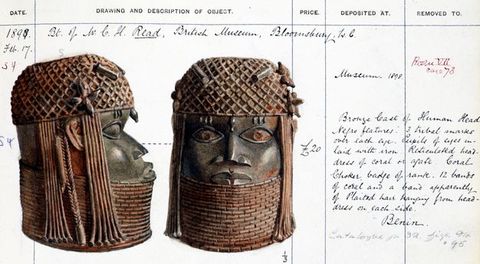 DATE.
DRAWING AND DESCRIPTION OF OBJECT.
PRICE.
DEPOSITED AT.
REMOVED TO.
1898
Feb. 17.
Bt. of Mr C. H. Read, British Museum, Bloomsbury, W.C.
54
S
£20
Museum. 1898.
Room VIII
case 73
Bronze Cast of Human Head
Negro features: 3 tribal marks
over each eye. Pupils of eyes in-
laid with iron Reticulated head-
dress of coral or agate Coral
Choker badge of rank. 12 bands
of coral and a band apparently
of Plaited hair hanging from head-
dress on each side.
Benin.
Catalogue
1/3